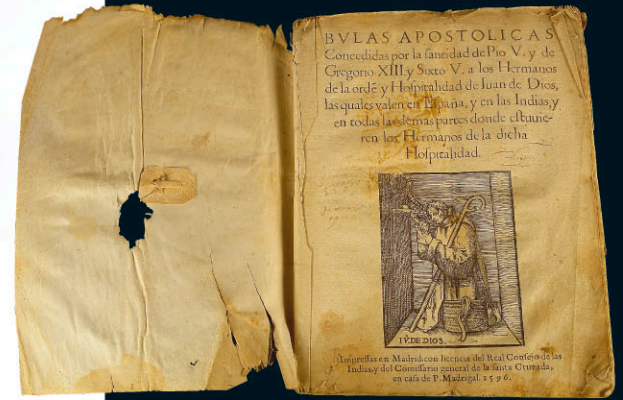 BVLAS APOSTOLICAS
Concedidas por la santidad de Pio V. y de
Gregorio XIII. y Sixto V. a los Hermanos
de la ordē y Hospitalidad de Iuan de Dios,
las quales valen en España, y en las Indias, y
en todas las demas partes donde estuuie-
ren los Hermanos de la dicha
Hospitalidad.
IV. DE DIOS.
Impressas en Madrid con licencia del Real Consejo de las
Indias, y del Comissario general de la santa Cruzada,
en casa de P. Madrigal. 1596.